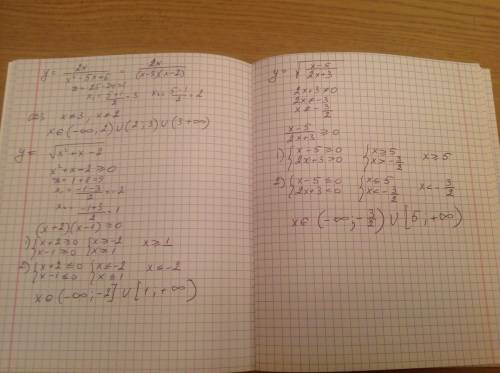 y = 2x / (x² - 5x + 6) = 2x / ((x-3)(x-2))
D = 25 - 24 = 1
x₁ = (5+1)/2 = 3  x₂ = (5-1)/2 = 2
x ≠ 3, x ≠ 2
x ∈ (-∞; 2) ∪ (2; 3) ∪ (3 +∞)
y = √(x² + x - 2)
x² + x - 2 ≥ 0
D = 1 + 8 = 9
x = (-1-3)/2 = -2
x₂ = (-1+3)/2 = 1
(x+2)(x-1) ≥ 0
1) { x+2 ≥ 0 { x ≥ -2  x ≥ 1
x-1 ≥ 0  x ≥ 1
2) { x+2 ≤ 0 { x ≤ -2  x ≤ -2
x-1 ≤ 0  x ≤ 1
x ∈ (-∞; -2] ∪ [1, +∞)
y = √((x-5)/(2x+3))
2x+3 ≠ 0
2x ≠ -3
x ≠ -3/2
(x-5)/(2x+3) ≥ 0
1) { x-5 ≥ 0 { x ≥ 5  x ≥ 5
2x+3 > 0  x > -3/2
2) { x-5 ≤ 0 { x ≤ 5  x < -3/2
2x+3 < 0  x < -3/2
x ∈ (-∞, -3/2) ∪ [5, +∞)